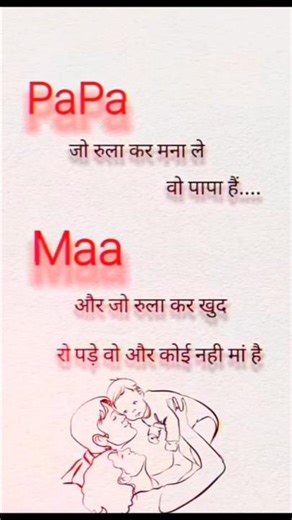 PaPa
जो रुला कर मना ले
वो पापा हैं....
Maa
और जो रुला कर खुद
रो पड़े वो और कोई नही मां है